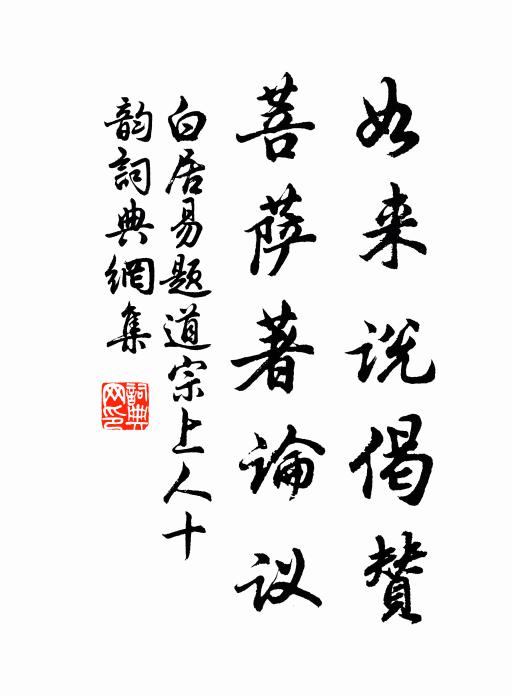 如来说偈赞
菩萨著论议
白居易题道宗上人十
韵詞典網集
詞典
网印